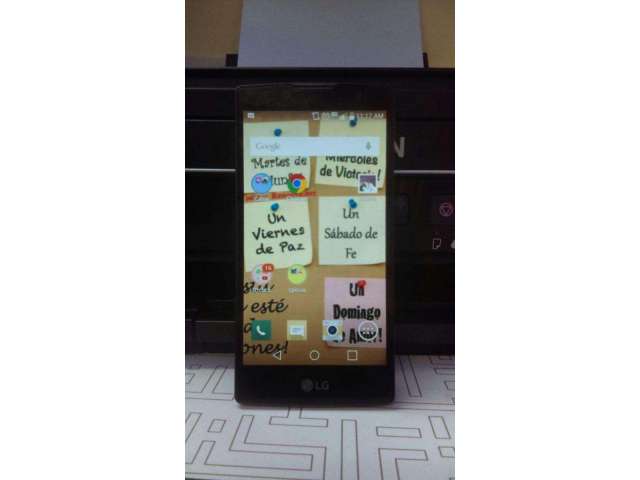 11:17 AM
Google
Martes de
Miércoles
de Victoria!
Un
Viernes
de Paz
Un
Sábado de
Fe
16
esté
ones!
Un
Domingo
de Amor!
LG
N